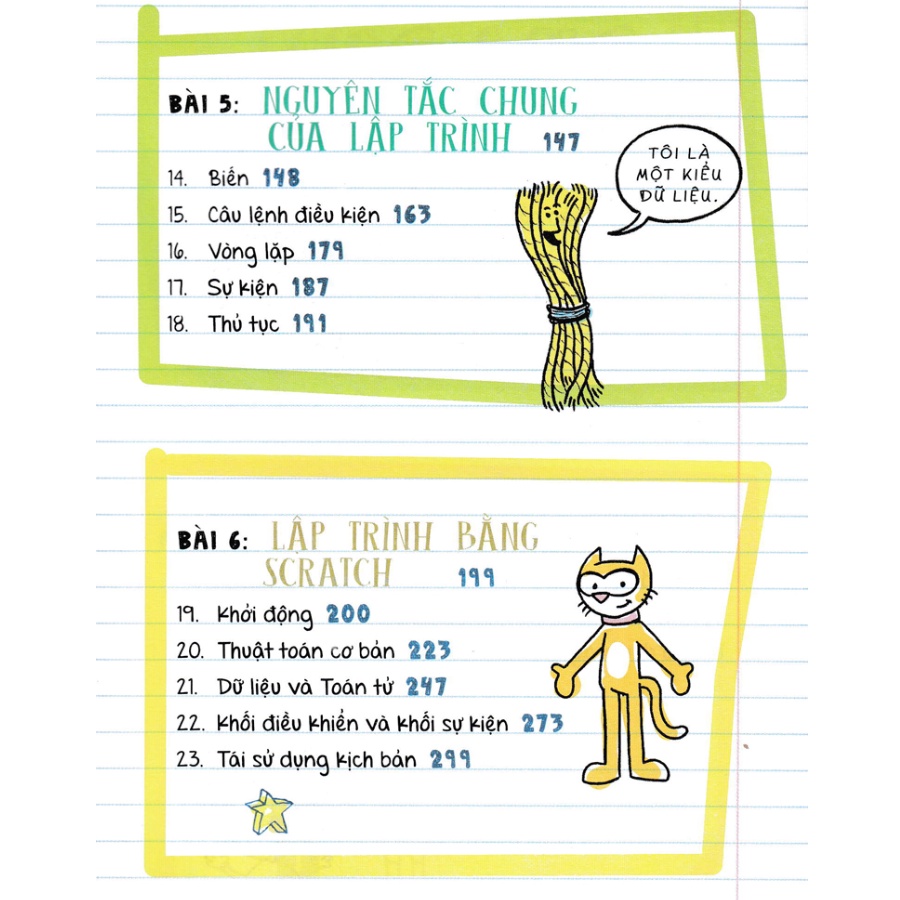 BÀI 5: NGUYÊN TẮC CHUNG
CỦA LẬP TRÌNH 147
14. Biến 148
15. Câu lệnh điều kiện 163
16. Vòng lặp 179
17. Sự kiện 187
18. Thủ tục 191
TÔI LÀ
MỘT KIỂU
DỮ LIỆU.
BÀI 6: LẬP TRÌNH BẰNG
SCRATCH 199
19. Khởi động 200
20. Thuật toán cơ bản 223
21. Dữ liệu và Toán tử 247
22. Khối điều khiển và khối sự kiện 273
23. Tái sử dụng kịch bản 299